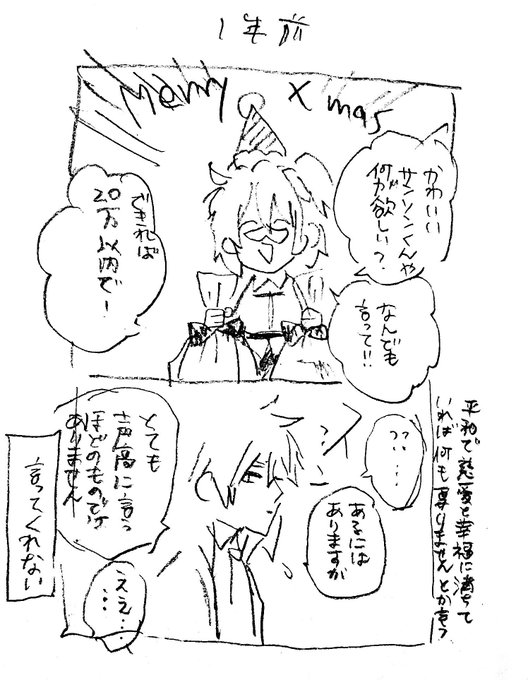 1年前
Merry Xmas
かわいい
サンソンくんや
何が欲しい?
なんでも
言って!!
できれば
20万以内で!
??…
あるには
ありますが
とても
声高に言う
ほどのものでは
ありません
ええ…
…
言ってくれない
平和で慈愛と幸福に満ちて
いれば何も要りませんとか言う